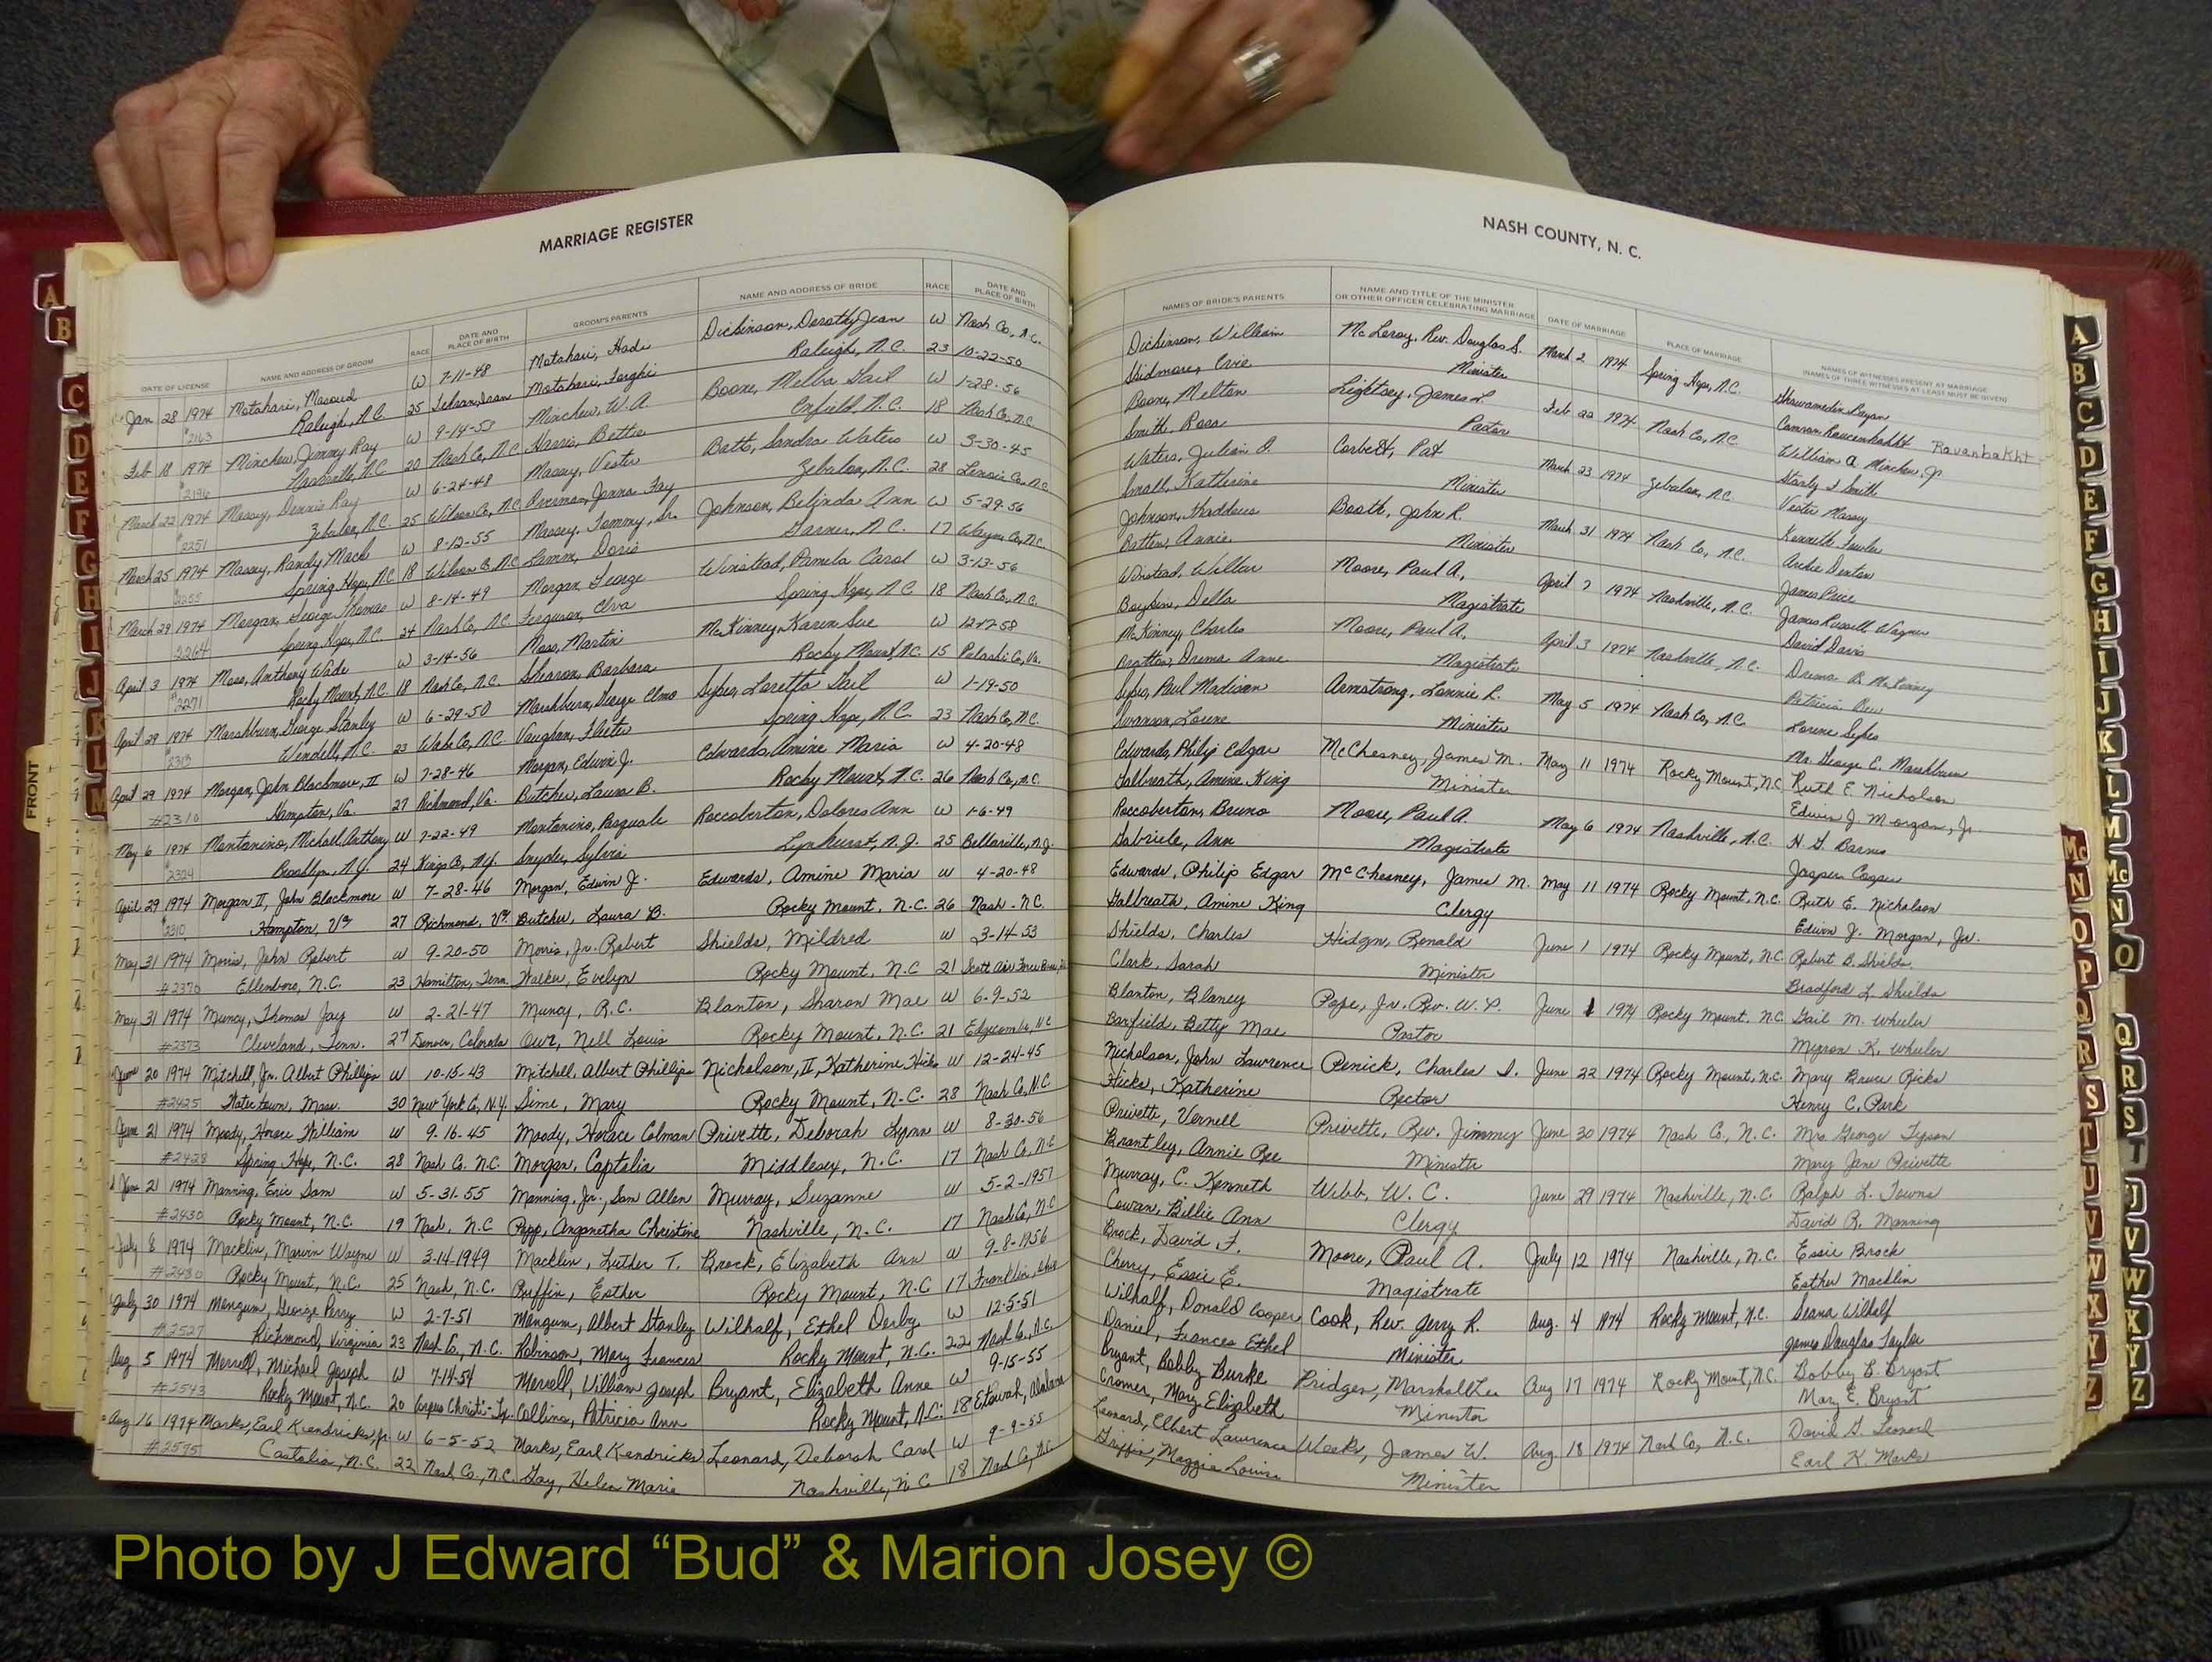 MARRIAGE REGISTER
DATE OF LICENSE NAME AND ADDRESS OF GROOM RACE DATE AND PLACE OF BIRTH GROOM'S PARENTS NAME AND ADDRESS OF BRIDE RACE DATE AND PLACE OF BIRTH
Jan 28 1974 Motahari, Masoud W 7-11-48 Motahari, Hadi Dickinson, Dorothy Jean W Nash Co., N.C.
#2163 Raleigh, N.C. 25 Tehran, Iran Motahari, Forghi Raleigh, N.C. 23 10-22-50
Feb 18 1974 Minchew, Jimmy Ray W 9-14-53 Minchew, W.A. Boone, Melba Gail W 1-28-56
#2196 Nashville, N.C. 20 Nash Co, N.C. Harris, Bettie Enfield, N.C. 18 Nash Co, N.C.
March 22 1974 Massey, Dennis Ray W 6-24-48 Massey, Vester Batts, Sandra Waters W 3-30-45
#2251 Zebulon, N.C. 25 Wilson Co, N.C. Overman, Jonna Fay Zebulon, N.C. 28 Lenoir Co, N.C.
March 25 1974 Massey, Randy Mack W 8-12-55 Massey, Tommy, Sr. Johnson, Belinda Ann W 5-29-56
#2255 Spring Hope, N.C. 18 Wilson Co, N.C. Lamm, Doris Garner, N.C. 17 Wayne Co, N.C.
March 29 1974 Morgan, George Thomas W 8-14-49 Morgan, George Winstead, Pamela Carol W 3-13-56
2264 Spring Hope, N.C. 24 Nash Co, N.C. Ferguson, Elva Spring Hope, N.C. 18 Nash Co, N.C.
April 3 1974 Moss, Anthony Wade W 3-14-56 Moss, Martin McKinney, Karen Sue W 12-17-58
#2271 Rocky Mount, N.C. 18 Nash Co, N.C. Shearon, Barbara Rocky Mount, N.C. 15 Pulaski Co, Va.
April 29 1974 Marshburn, George Stanley W 6-29-50 Marshburn, George Elmo Sykes, Loretta Gail W 1-19-50
#2313 Wendell, N.C. 23 Wake Co, N.C. Vaughan, Fleeta Spring Hope, N.C. 23 Nash Co, N.C.
April 29 1974 Morgan, John Blackmore, II W 7-28-46 Morgan, Edwin J. Edwards, Amine Maria W 4-20-48
#2310 Hampton, Va. 27 Richmond, Va. Butcher, Laura B. Rocky Mount, N.C. 26 Nash Co, N.C.
May 6 1974 Montonino, Michael Anthony W 7-22-49 Montonino, Pasquale Roccoberton, Dolores Ann W 1-6-49
#2324 Brooklyn, N.Y. 24 Kings Co, N.Y. Snyder, Sylvia Lynhurst, N.J. 25 Belleville, N.J.
April 29 1974 Morgan II, John Blackmore W 7-28-46 Morgan, Edwin J. Edwards, Amine Maria W 4-20-48
#2310 Hampton, Va 27 Richmond, Va. Butcher, Laura B. Rocky Mount, N.C. 26 Nash - NC
May 31 1974 Morris, John Robert W 9-20-50 Morris, Jr. Robert Shields, Mildred W 3-14-53
#2370 Ellenboro, N.C. 23 Hamilton, Tenn Walker, Evelyn Rocky Mount, N.C 21 Scott Air Force Base
May 31 1974 Muncy, Thomas Jay W 2-21-47 Muncy, R.C. Blanton, Sharon Mae W 6-9-52
#2373 Cleveland, Tenn. 27 Denver, Colorado Owr, Nell Louis Rocky Mount, N.C. 21 Edgecombe, NC
June 20 1974 Mitchell, Jr. Albert Phillips W 10-15-43 Mitchell, Albert Phillips Nicholson, II, Katherine Hicks W 12-24-45
#2425 Watertown, Mass. 30 New York Co, N.Y. Sime, Mary Rocky Mount, N.C. 28 Nash Co, N.C.
June 21 1974 Moody, Horace William W 9-16-45 Moody, Horace Colman Privette, Deborah Lynn W 8-30-56
#2428 Spring Hope, N.C. 28 Nash Co. N.C. Morgan, Captolia Middlesex, N.C. 17 Nash Co, N.C
June 21 1974 Manning, Eric Sam W 5-31-55 Manning, Jr., Sam Allen Murray, Suzanne W 5-2-1957
#2430 Rocky Mount, N.C. 19 Nash, N.C Popp, Anganetha Christine Nashville, N.C. 17 Nash Co, N.C
July 8 1974 Macklin, Marvin Wayne W 3-14-1949 Macklin, Luther T. Brock, Elizabeth Ann W 9-8-1956
#2480 Rocky Mount, N.C. 25 Nash, N.C. Griffin, Esther Rocky Mount, N.C 17 Franklin, Ohio
July 30 1974 Mangum, George Perry W 2-7-51 Mangum, Albert Stanley Wilhalf, Ethel Derby W 12-5-51
#2527 Richmond, Virginia 23 Nash Co, N.C. Robinson, Mary Frances Rocky Mount, N.C. 22 Nash Co, N.C.
Aug 5 1974 Merrell, Michael Joseph W 7-14-54 Merrell, William Joseph Bryant, Elizabeth Anne W 9-15-55
#2543 Rocky Mount N.C. 20 Corpus Christi-Tx. Collins, Patricia Ann Rocky Mount, N.C. 18 Etowah, Alabama
Aug 16 1974 Marks, Earl Kendricks, Jr. W 6-5-52 Marks, Earl Kendricks Leonard, Deborah Carol W 9-9-55
#2575 Castalia, N.C. 22 Nash Co, N.C. Gay, Helen Marie Nashville, N.C 18 Nash Co, N.C.
NASH COUNTY, N. C.
NAMES OF BRIDE'S PARENTS NAME AND TITLE OF THE MINISTER OR OTHER OFFICER CELEBRATING MARRIAGE DATE OF MARRIAGE PLACE OF MARRIAGE NAMES OF WITNESSES PRESENT AT MARRIAGE (NAMES OF THREE WITNESSES AT LEAST MUST BE GIVEN)
Dickinson, William McLeroy, Rev. Douglas S. March 2 1974 Spring Hope, N.C.
Skidmore, Evie Minister Ravanbakht
Boone, Melton Lightsey, James L. Feb 22 1974 Nash Co, N.C. William A Minchew, Jr.
Smith, Rosa Pastor Smith
Waters, Julian D. Corbett, Pat March 23 1974 Zebulon, N.C. Vester Massey
Small, Katherine Minister Kenneth Fowler
Johnson, Thaddeus Booth, John R. March 31 1974 Nash Co, N.C. Archie Denton
Batten, Annie Minister James Price
Winstead, Wilbur Moore, Paul A., April 7 1974 Nashville, N.C. James Russell Wagner
Boykin, Della Magistrate David Davis
McKinney, Charles Moore, Paul A. April 3 1974 Nashville, N.C. Drema B. McKinney
Bratton, Drema Anne Magistrate Patricia
Sykes, Paul Madison Armstrong, Lonnie R. May 5 1974 Nash Co, N.C. Lorene Sykes
Swanson, Lorene Minister Mr. George E. Marshburn
Edwards, Philip Edgar McChesney, James M. May 11 1974 Rocky Mount, N.C. Ruth E. Nicholson
Galbreath, Amine King Minister Edwin J. Morgan, Jr.
Roccoberton, Bruno Moore, Paul A. May 6 1974 Nashville, N.C. H. G. Barnes
Gabriele, Ann Magistrate Jasper
Edwards, Philip Edgar McChesney, James M. May 11 1974 Rocky Mount, N.C. Ruth E. Nicholson
Galbreath, Amine King Clergy Edwin J. Morgan, Jr.
Shields, Charles Hidgn, Ronald June 1 1974 Rocky Mount, N.C. Robert B. Shields
Clark, Sarah Minister Bradford L Shields
Blanton, Blaney Pope, Jr. Rev. W. P. June 1 1974 Rocky Mount, N.C. Gail M. Wheeler
Barfield, Betty Mae Pastor Myron K. Wheeler
Nicholson, John Lawrence Penick, Charles I. June 22 1974 Rocky Mount, N.C. Mary Bruce Ricks
Hicks, Katherine Rector Henry C. Park
Privette, Vernell Privette, Rev. Jimmey June 30 1974 Nash Co., N.C. Mrs. George Tyson
Brantley, Annie Ree Minister Mary Jane Privette
Murray, C. Kenneth Webb, W. C. June 29 1974 Nashville, N.C. Ralph L. Towns
Cowan, Billie Ann Clergy David R. Manning
Brock, David F. Moore, Paul A. July 12 1974 Nashville, N.C. Essie Brock
Cherry, Essie E. Magistrate Esther Macklin
Wilhalf, Donald Cooper Cook, Rev. Jerry R. Aug. 4 1974 Rocky Mount, N.C. Seana Wilhalf
Daniel, Frances Ethel Minister James Douglas Taylor
Bryant, Bobby Burke Pridgen, Marshall Lee Aug 17 1974 Rocky Mount, N.C. Bobby B. Bryant
Cromer, Mary Elizabeth Minister Mary E. Bryant
Leonard, Elbert Lawrence Weeks, James W. Aug. 18 1974 Nash Co, N.C. David G. Leonard
Griffin, Maggie Louise Minister Earl K. Marks
A
B
C
D
E
F
G
H
I
J
K
L
M
FRONT
Mc
N
O
P
Q
R
S
T
U
V
W
X
Y
Z
A
B
C
D
E
F
G
H
I
J
K
L
M
Mc
N
O
Q
R
S
T
J
V
W
X
Y
Z
Photo by J Edward “Bud” & Marion Josey ©